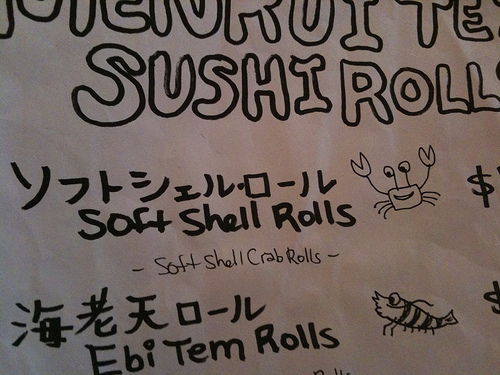 SUSHI ROLL
ソフトシェル・ロール $
Soft Shell Rolls
- Soft Shell Crab Rolls -
海老天ロール
Ebi Tem Rolls